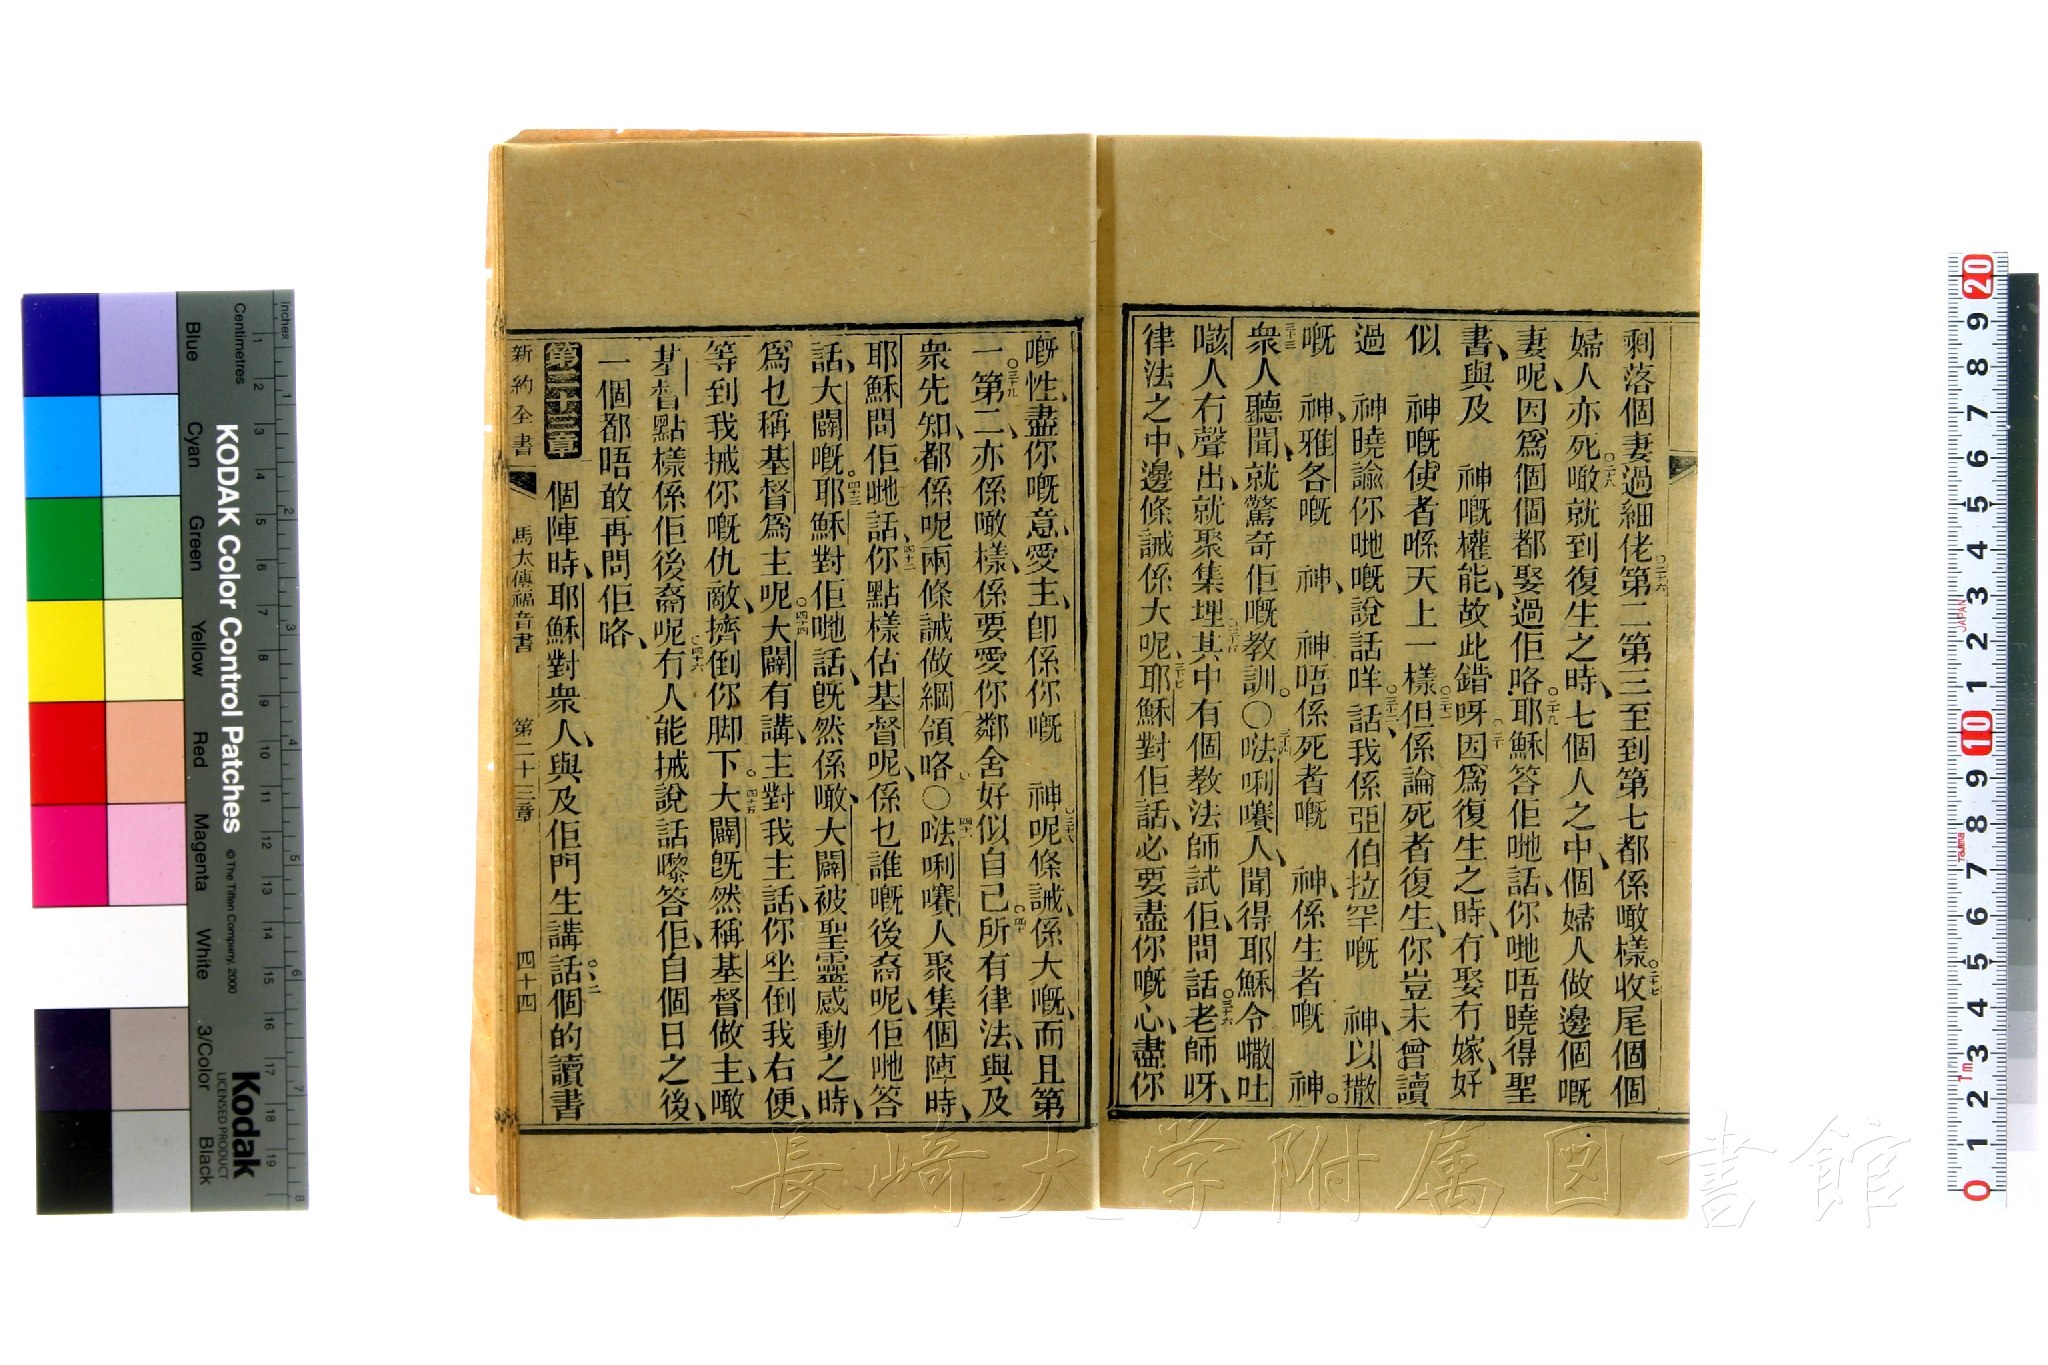 剩落個妻過細佬第二第三至到第七都係噉樣收尾個個
婦人亦死噉就到復生之時七個人之中個婦人做邊個嘅
妻呢因爲個個都娶過佢咯耶穌答佢哋話你哋唔曉得聖
書與及　神嘅權能故此錯呀因爲復生之時冇娶冇嫁好
似　神嘅使者喺天上一樣但係論死者復生你豈未曾讀
過　神曉諭你哋嘅說話咩話我係亞伯拉罕嘅　神以撒
嘅　神雅各嘅　神　神唔係死者嘅　神係生者嘅　神
衆人聽聞就驚奇佢嘅教訓○𠵽唎嚽人聞得耶穌令嚫吐
嘅人冇聲出就聚集埋其中有個教法師試佢問話老師呀
律法之中邊條誡係大呢耶穌對佢話必要盡你嘅心盡你
嘅性盡你嘅意愛主卽係你嘅　神呢條誡係大嘅而且第
一第二亦係噉樣係要愛你鄰舍好似自己所有律法與及
衆先知都係呢兩條誡做綱領咯○𠵽唎嚽人聚集個陣時
耶穌問佢哋話你點樣估基督呢係乜誰嘅後裔呢佢哋答
話大闢嘅耶穌對佢哋話旣然係噉大闢被聖靈感動之時
爲乜稱基督爲主呢大闢有講主對我主話你坐倒我右便
等到我𢫏你嘅仇敵擠倒你脚下大闢旣然稱基督做主噉
基督點樣係佢後裔呢冇人能𢫏說話嚟答佢自個日之後
一個都唔敢再問佢咯
第二十三章　個陣時耶穌對衆人與及佢門生講話個的讀書
新約全書　馬太傳福音書　第二十三章　四十四
長崎大学附属図書館
KODAK Color Control Patches
© The Tiffen Company, 2000
Kodak
LICENSED PRODUCT
Inches
Centimetres
Blue
Cyan
Green
Yellow
Red
Magenta
White
3/Color
Black
JAPAN
Tajima